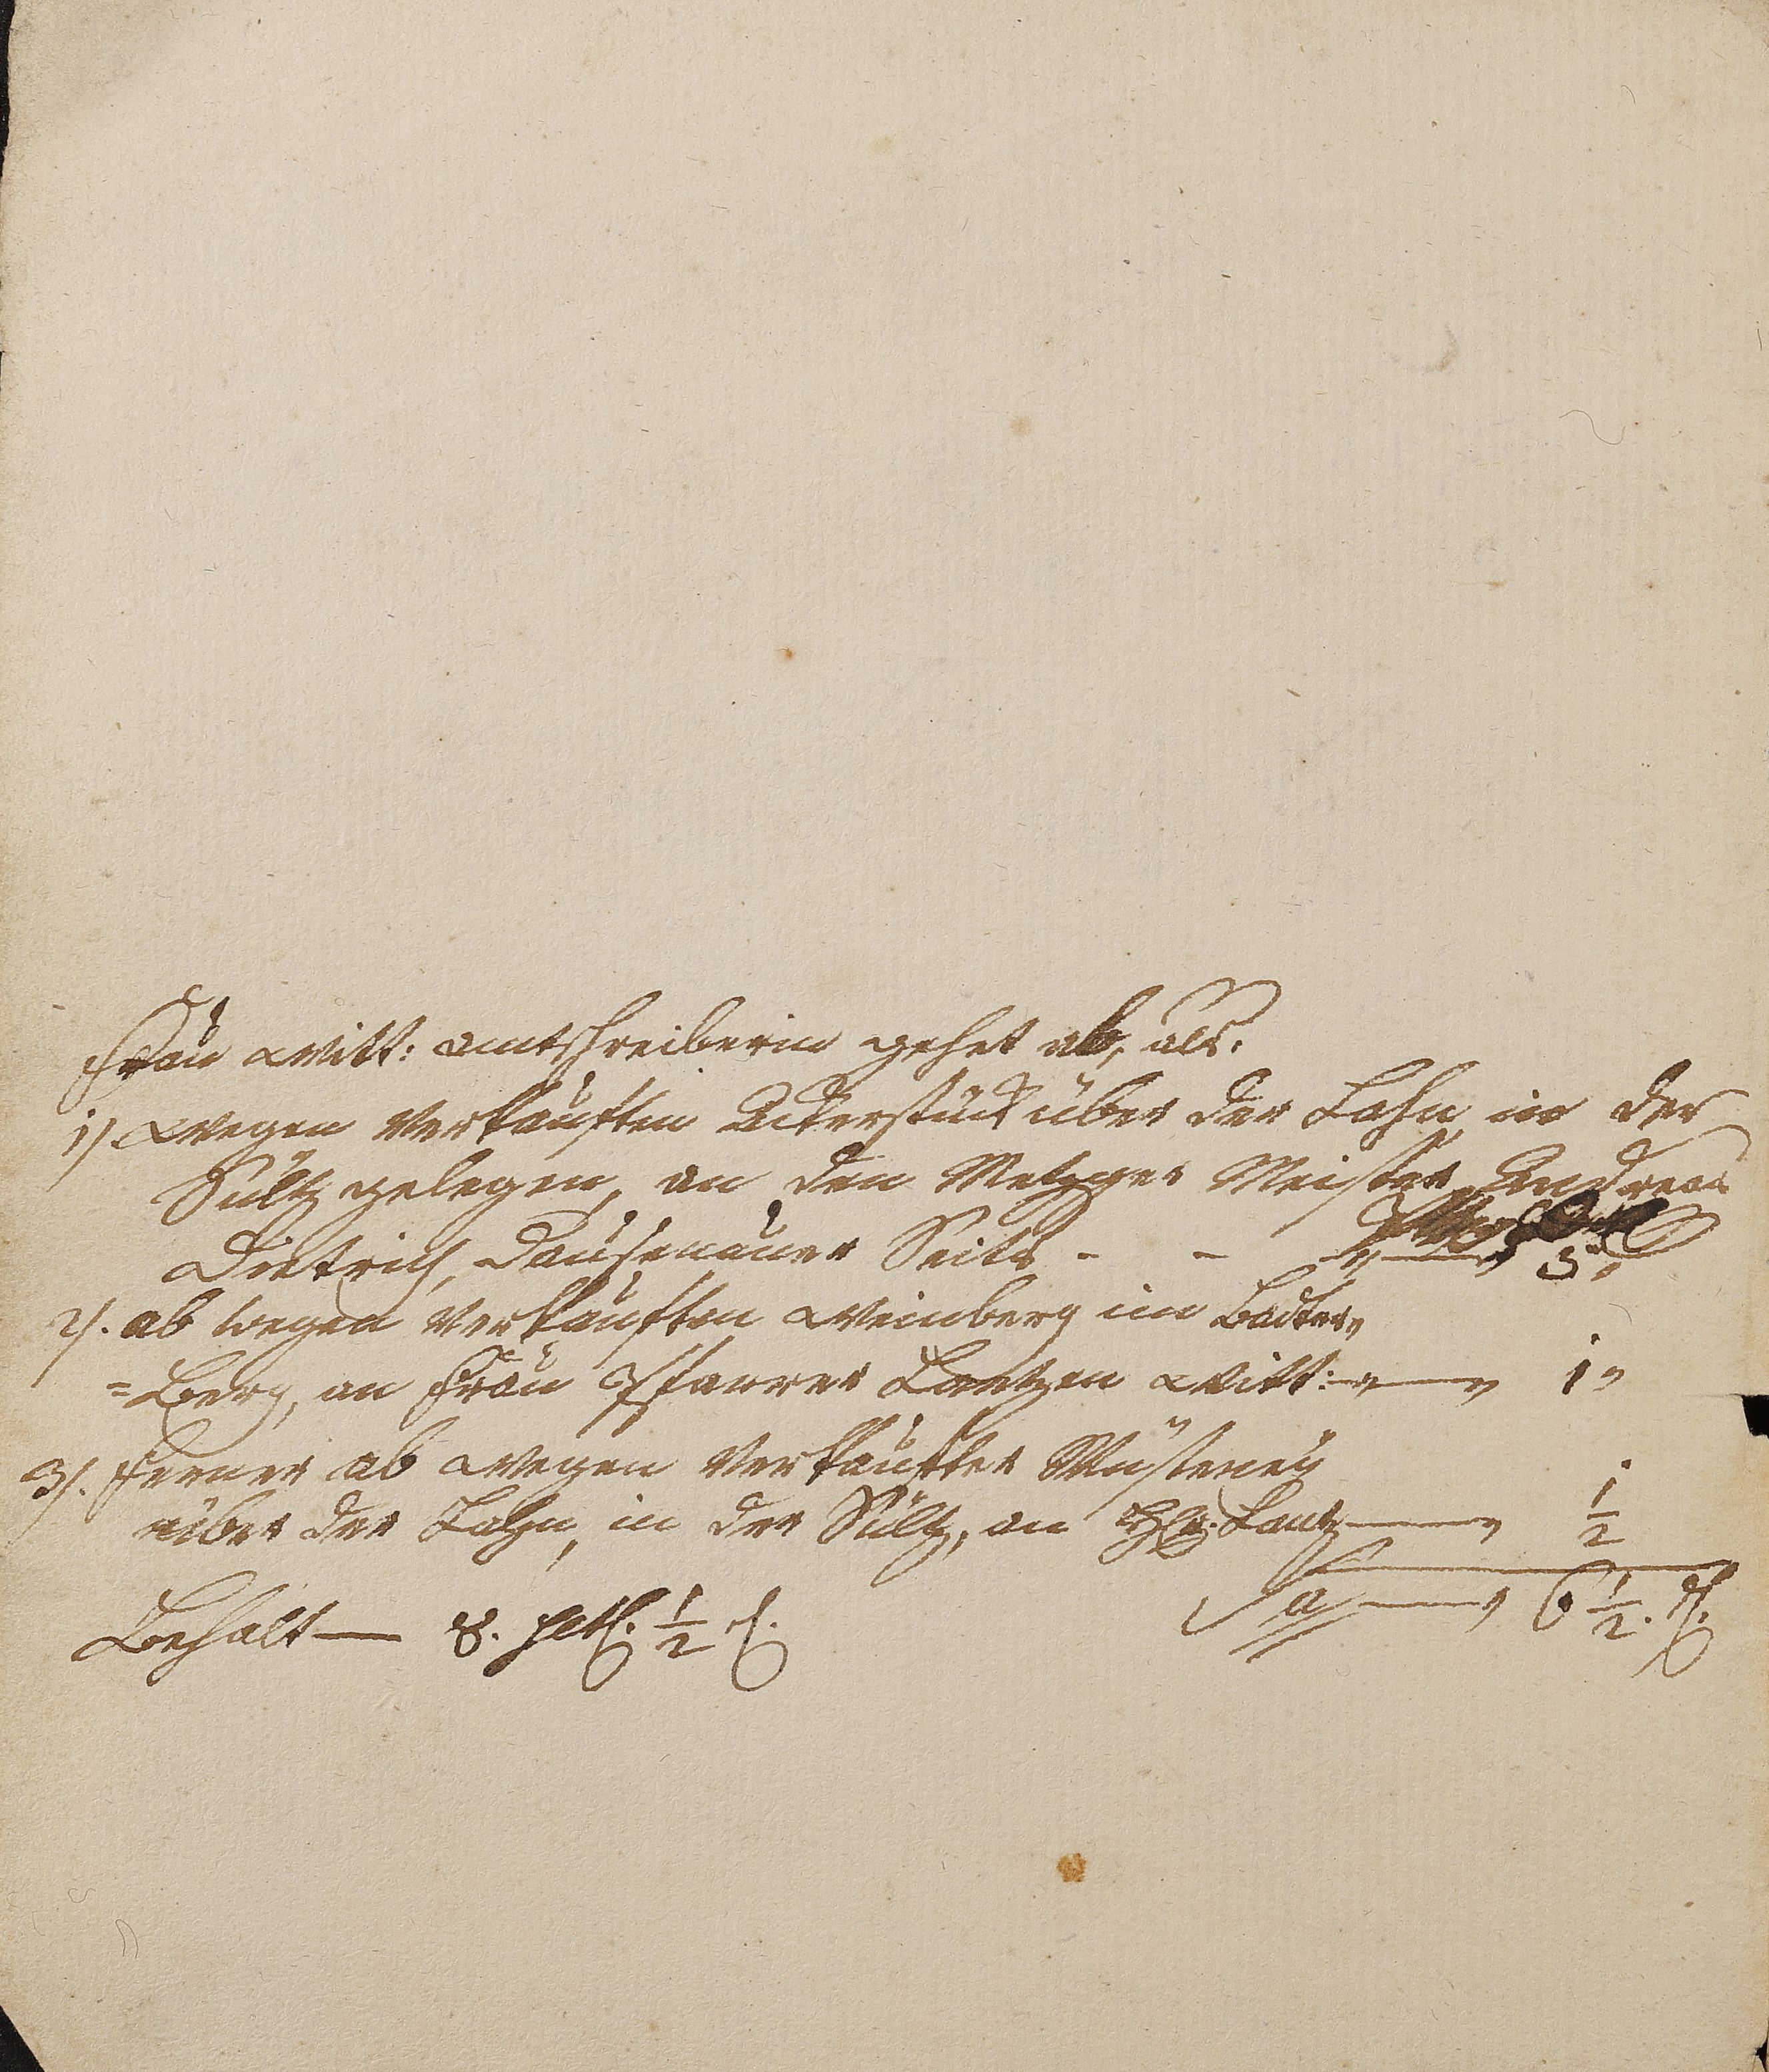 Frau Witt: Amtschreiberin gehet ab, als.
1). Wegen verkauften Ackerstück über der Lahn, in der
Sültz gelegen, an den Metzger Meister Andreas
Dietrich, Dausenauer Seits - - 5 "
2). ab wegen verkauften Weinberg im Bader,,
=Berg, an Frau Pfarrer Lantzen Witt: 1 "
3). Ferner ab wegen verkaufter Wüsteney
über der Lahn, in der Sültz, an Lantz 1/2
Sa 6 1/2.
Behalt — 8. 1/2